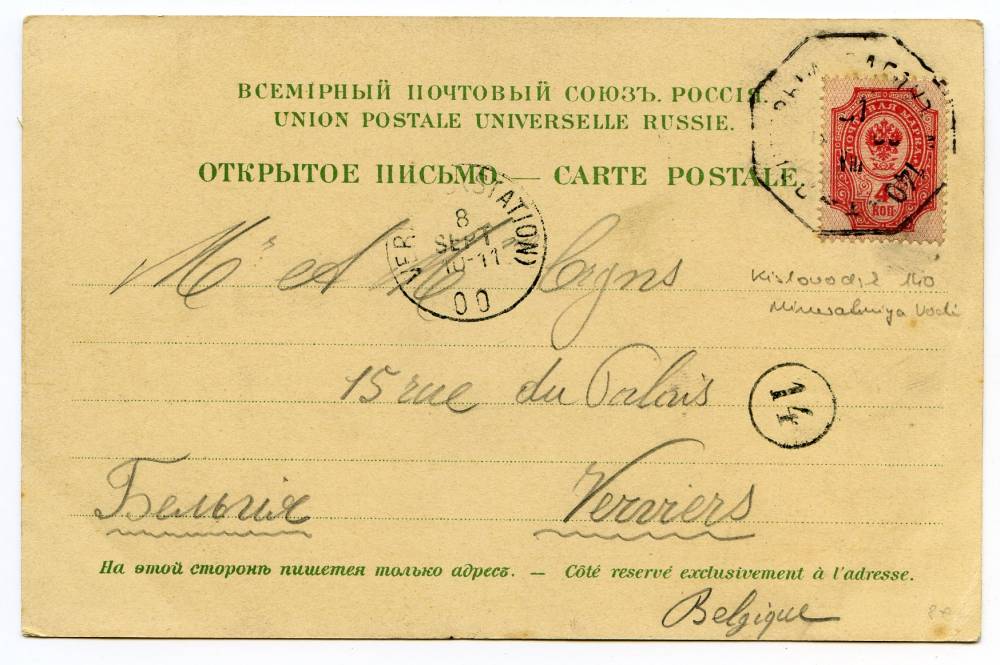 ВСЕМІРНЫЙ ПОЧТОВЫЙ СОЮЗЪ. РОССІЯ.
UNION POSTALE UNIVERSELLE RUSSIE.
ОТКРЫТОЕ ПИСЬМО — CARTE POSTALE
ПОЧТОВАЯ МАРКА
4
КОП.
140
(STATION)
8
SEPT
10-11
00
Mr & Mme
Kislovodsk 140
Mineralniya Vodi
15 rue du Palais
14
Бельгія Verviers
На этой сторонѣ пишется только адресъ. — Côté reservé exclusivement à l'adresse.
Belgique